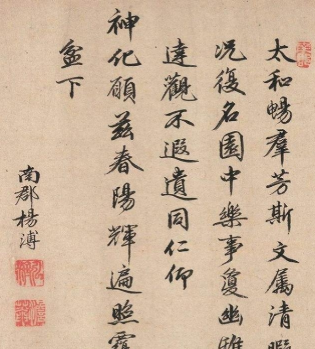 太和暢群芳斯文属清暇
況復名園中樂事復幽雅
達觀不遐遺同仁仰
神化願茲春陽輝遍照覆
盆下
南郡楊溥